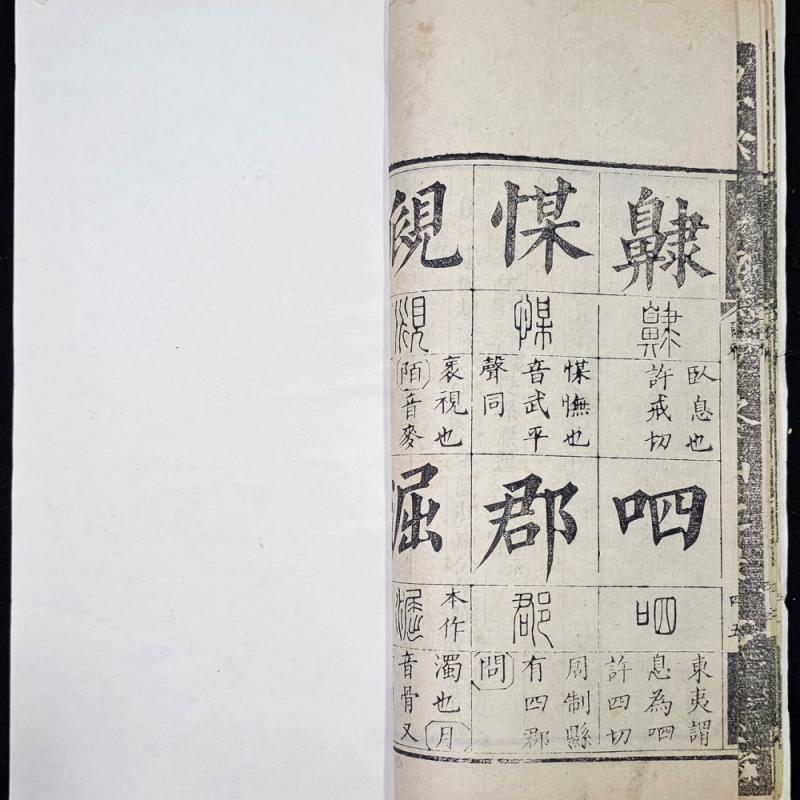 齂
齂
臥息也
許戒切
呬
呬
東夷謂
息為呬
許四切
憮也
音武平
聲同
郡
郡
周制縣
有四郡
問
覛
覛
衺視也
陌音麥
淈
本作
濁也月
音骨又